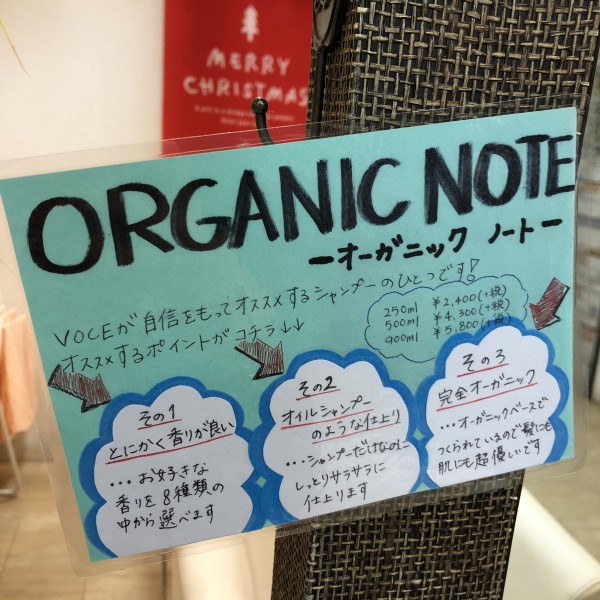 MERRY
CHRISTMAS
ORGANIC NOTE
ーオーガニック ノートー
VOCEが自信をもってオススメするシャンプーのひとつです!
オススメするポイントがコチラ↓↓
250ml ¥2,400(+税)
500ml ¥4,300(+税)
900ml ¥5,800(+税)
その1
とにかく香りが良い
...お好きな
香りを8種類の
中から選べます
その2
オイルシャンプー
のような仕上り
...シャンプーだけなのに
しっとりサラサラに
仕上ります
その3
完全オーガニック
...オーガニックベースで
つくられているので髪にも
肌にも超優しいです